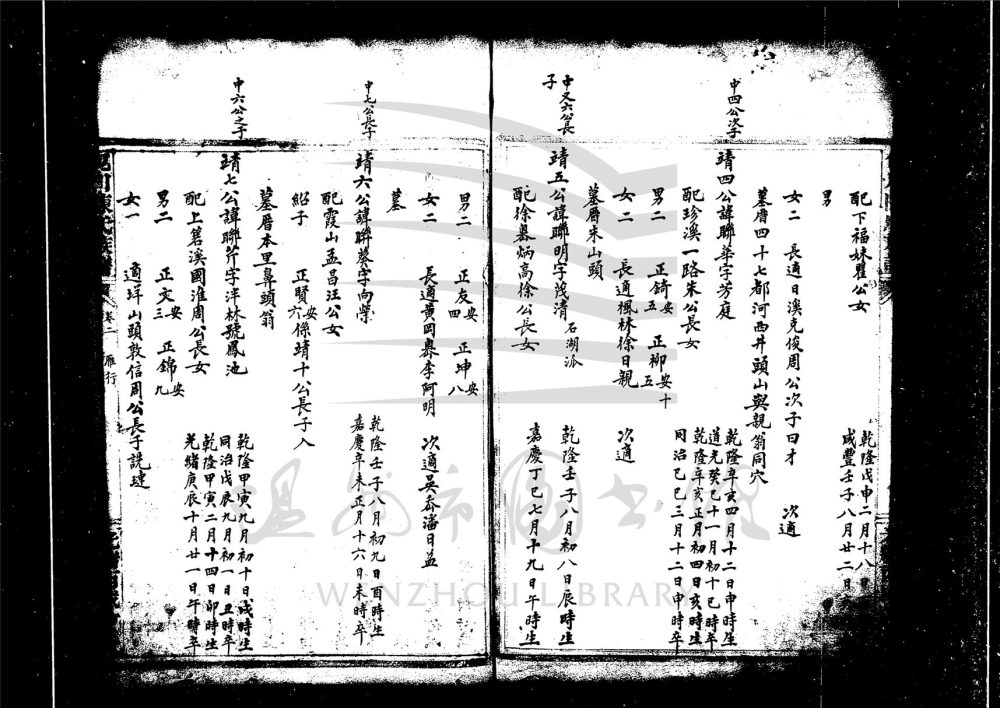 配下福妹瞿公女
乾隆戊申二月十八
咸豐壬子八月廿二日
男
女二 長適日溪克俊周公次子曰才 次適
墓厝四十七都河西井頭山與親翁同穴
中四公次子
靖四公諱聯華字芳庭
乾隆辛亥四月十二日申時生
道光癸巳十一月初十巳時卒
配珍溪一路朱公長女
乾隆辛亥正月初四日亥時生
同治己巳三月十二日申時卒
男二 正錡安五 正柳安十五
女二 長適楓林徐日親 次適
墓厝朱山頭
中又六公長子
靖五公諱聯明字茂清 石湖派
乾隆壬子八月初八日辰時生
配徐岙炳高徐公長女
嘉慶丁巳七月十九日午時生
男二 正友安四 正坤安八
女二 長適黃岡岙李阿明 次適吳岙潘日益
墓
中七公長子
靖六公諱聯蔡字向榮
乾隆壬子八月初九日酉時生
嘉慶辛未正月十六日未時卒
配霞山孟昌汪公女
紹子 正賢安六係靖十公長子入
墓厝本里鼻頭翁
中六公之子
靖七公諱聯芹字泮林號鳳池
乾隆甲寅九月初十日戌時生
同治戊辰九月初一日丑時卒
配上箬溪國淮周公長女
乾隆甲寅二月十四日卯時生
光緒庚辰十月廿一日午時卒
男二 正文安三 正錦安九
女一 適垟山頭敦信周公長子說璉
卷二 雁行
溫州市圖書館
WENZHOU LIBRARY